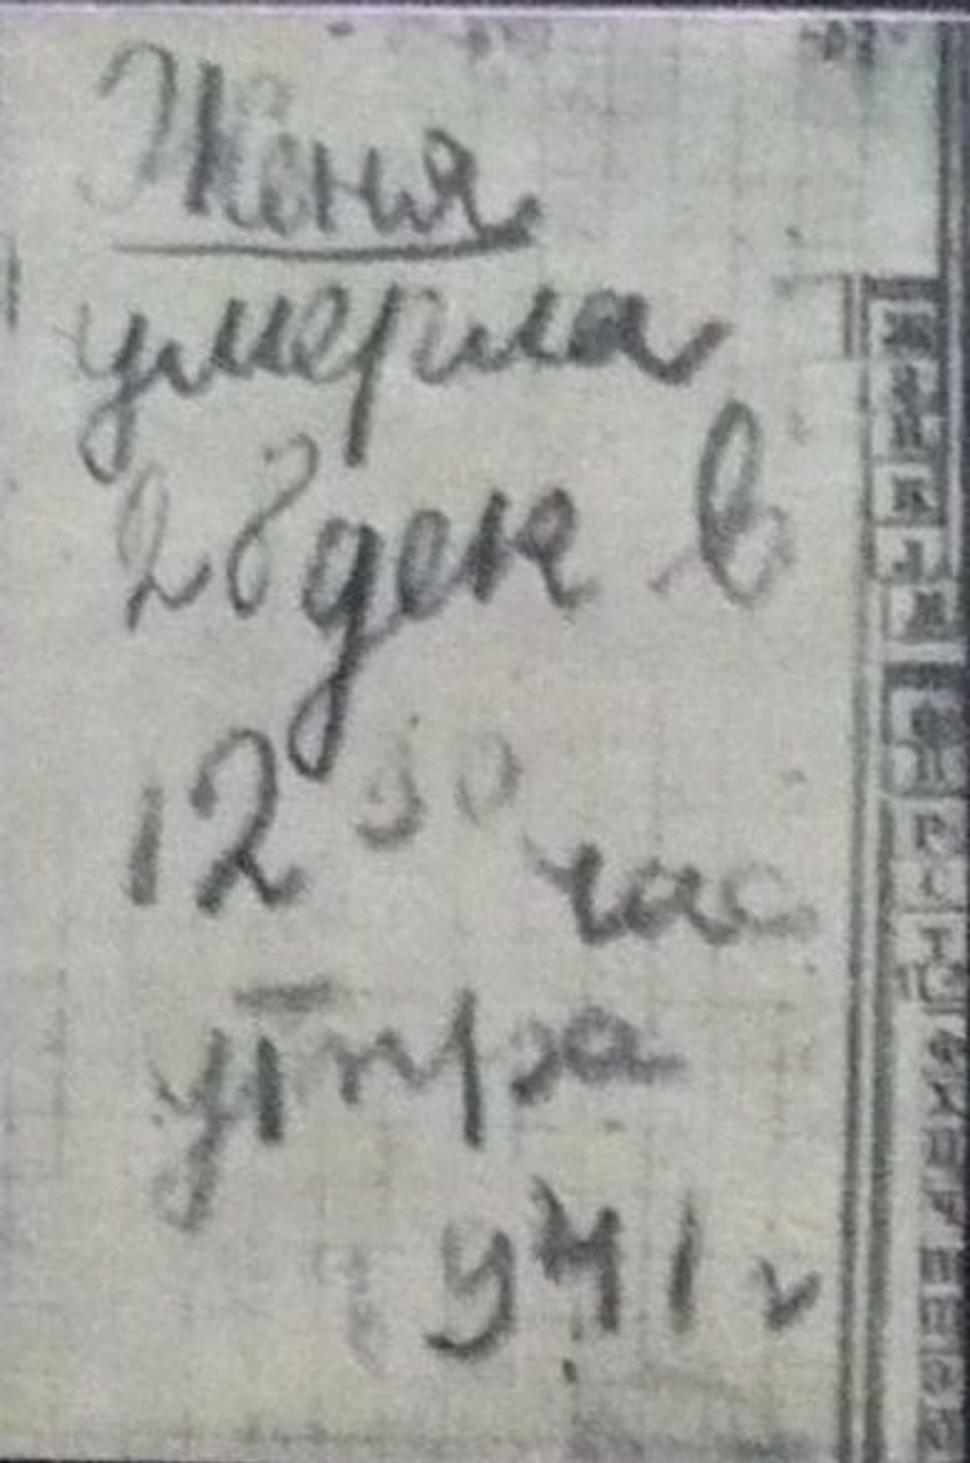 Женя
умерла
28 дек в
12 30 час
утра
1941 г